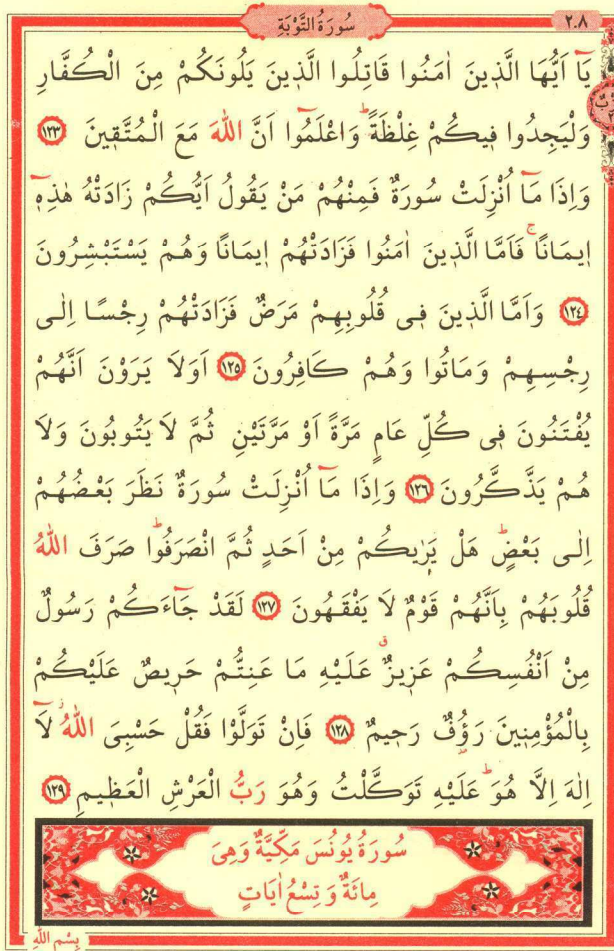 ٢٠٨
سُورَةُ التَّوْبَةِ
يَٓا اَيُّهَا الَّذ۪ينَ اٰمَنُوا قَاتِلُوا الَّذ۪ينَ يَلُونَكُمْ مِنَ الْكُفَّارِ
وَلْيَجِدُوا ف۪يكُمْ غِلْظَةًۜ وَاعْلَمُٓوا اَنَّ اللّٰهَ مَعَ الْمُتَّق۪ينَ ﴿١٢٣﴾
وَاِذَا مَٓا اُنْزِلَتْ سُورَةٌ فَمِنْهُمْ مَنْ يَقُولُ اَيُّكُمْ زَادَتْهُ هٰذِه۪ٓ
ا۪يمَانًاۚ فَاَمَّا الَّذ۪ينَ اٰمَنُوا فَزَادَتْهُمْ ا۪يمَانًا وَهُمْ يَسْتَبْشِرُونَ
﴿١٢٤﴾ وَاَمَّا الَّذ۪ينَ ف۪ى قُلُوبِهِمْ مَرَضٌ فَزَادَتْهُمْ رِجْسًا اِلٰى
رِجْسِهِمْ وَمَاتُوا وَهُمْ كَافِرُونَ ﴿١٢٥﴾ اَوَلَا يَرَوْنَ اَنَّهُمْ
يُفْتَنُونَ ف۪ى كُلِّ عَامٍ مَرَّةً اَوْ مَرَّتَيْنِ ثُمَّ لَا يَتُوبُونَ وَلَا
هُمْ يَذَّكَّرُونَ ﴿١٢٦﴾ وَاِذَا مَٓا اُنْزِلَتْ سُورَةٌ نَظَرَ بَعْضُهُمْ
اِلٰى بَعْضٍۜ هَلْ يَرٰيكُمْ مِنْ اَحَدٍ ثُمَّ انْصَرَفُواۜ صَرَفَ اللّٰهُ
قُلُوبَهُمْ بِاَنَّهُمْ قَوْمٌ لَا يَفْقَهُونَ ﴿١٢٧﴾ لَقَدْ جَٓاءَكُمْ رَسُولٌ
مِنْ اَنْفُسِكُمْ عَز۪يزٌ عَلَيْهِ مَا عَنِتُّمْ حَر۪يصٌ عَلَيْكُمْ
بِالْمُؤْمِن۪ينَ رَؤُ۫فٌ رَح۪يمٌ ﴿١٢٨﴾ فَاِنْ تَوَلَّوْا فَقُلْ حَسْبِىَ اللّٰهُۘ لَٓا
اِلٰهَ اِلَّا هُوَۜ عَلَيْهِ تَوَكَّلْتُ وَهُوَ رَبُّ الْعَرْشِ الْعَظ۪يمِ ﴿١٢٩﴾
سُورَةُ يُونُسَ مَكِّيَّةٌ وَهِىَ
مِائَةٌ وَ تِسْعُ اٰيَاتٍ
بِسْمِ اللّٰهِ